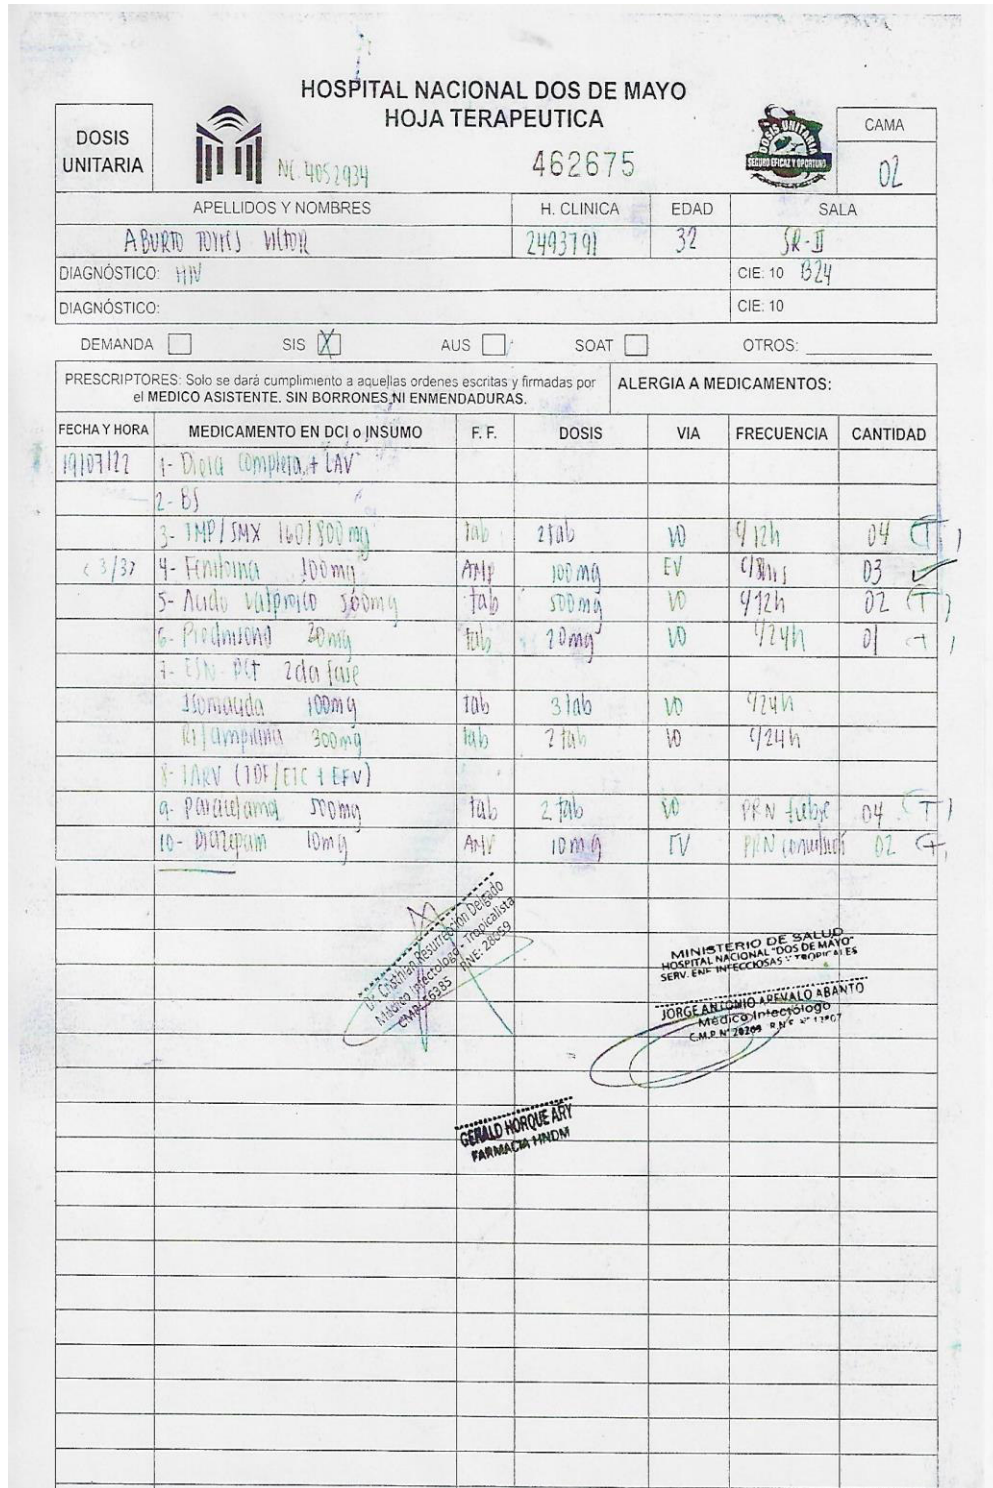 HOSPITAL NACIONAL DOS DE MAYO
HOJA TERAPEUTICA
DOSIS UNITARIA
NC. 4052934
462675
DOSIS UNITARIA
SEGURO EFICAZ Y OPORTUNO
CAMA
02
APELLIDOS Y NOMBRES H. CLINICA EDAD SALA
ABURTO TORRES VICTOR 2493791 32 SR-II
DIAGNÓSTICO: HIV CIE: 10 B24
DIAGNÓSTICO: CIE: 10
DEMANDA SIS X AUS SOAT OTROS:
PRESCRIPTORES: Solo se dará cumplimiento a aquellas ordenes escritas y firmadas por
el MEDICO ASISTENTE. SIN BORRONES NI ENMENDADURAS.
ALERGIA A MEDICAMENTOS:
FECHA Y HORA MEDICAMENTO EN DCI o INSUMO F. F. DOSIS VIA FRECUENCIA CANTIDAD
19/07/22 1- Dieta completa + LAV
2- BS
3- TMP/SMX 160/800 mg tab 2 tab VO c/12h 04 (T)
(3/3) 4- Fenitoina 100mg AMP 100 mg EV c/8hrs 03
5- Acido Valproico 500mg tab 500mg VO c/12h 02 (T)
6- Prednisona 20mg tab 20mg VO c/24h 01 (T)
7- ESN- PCT 2da fase
Isoniacida 100mg tab 3 tab VO c/24h
Rifampicina 300mg tab 2 tab VO c/24h
8- TARV (TDF/ETC + EFV)
9- Paracetamol 500mg tab 2 tab VO PRN fiebre 04 (T)
10- Diazepam 10mg AMP 10mg EV PRN 02 (T)
Dr. Cristhian Resurrección Delgado
Médico Infectólogo - Tropicalista
CMP: 56385 RNE: 28059
MINISTERIO DE SALUD
HOSPITAL NACIONAL "DOS DE MAYO"
SERV. ENF. INFECCIOSAS Y TROPICALES
JORGE ANTONIO AREVALO ABANTO
Médico Infectólogo
C.M.P. N° 20209 R.N.E. N°
GERALD HORQUE ARY
FARMACIA HNDM